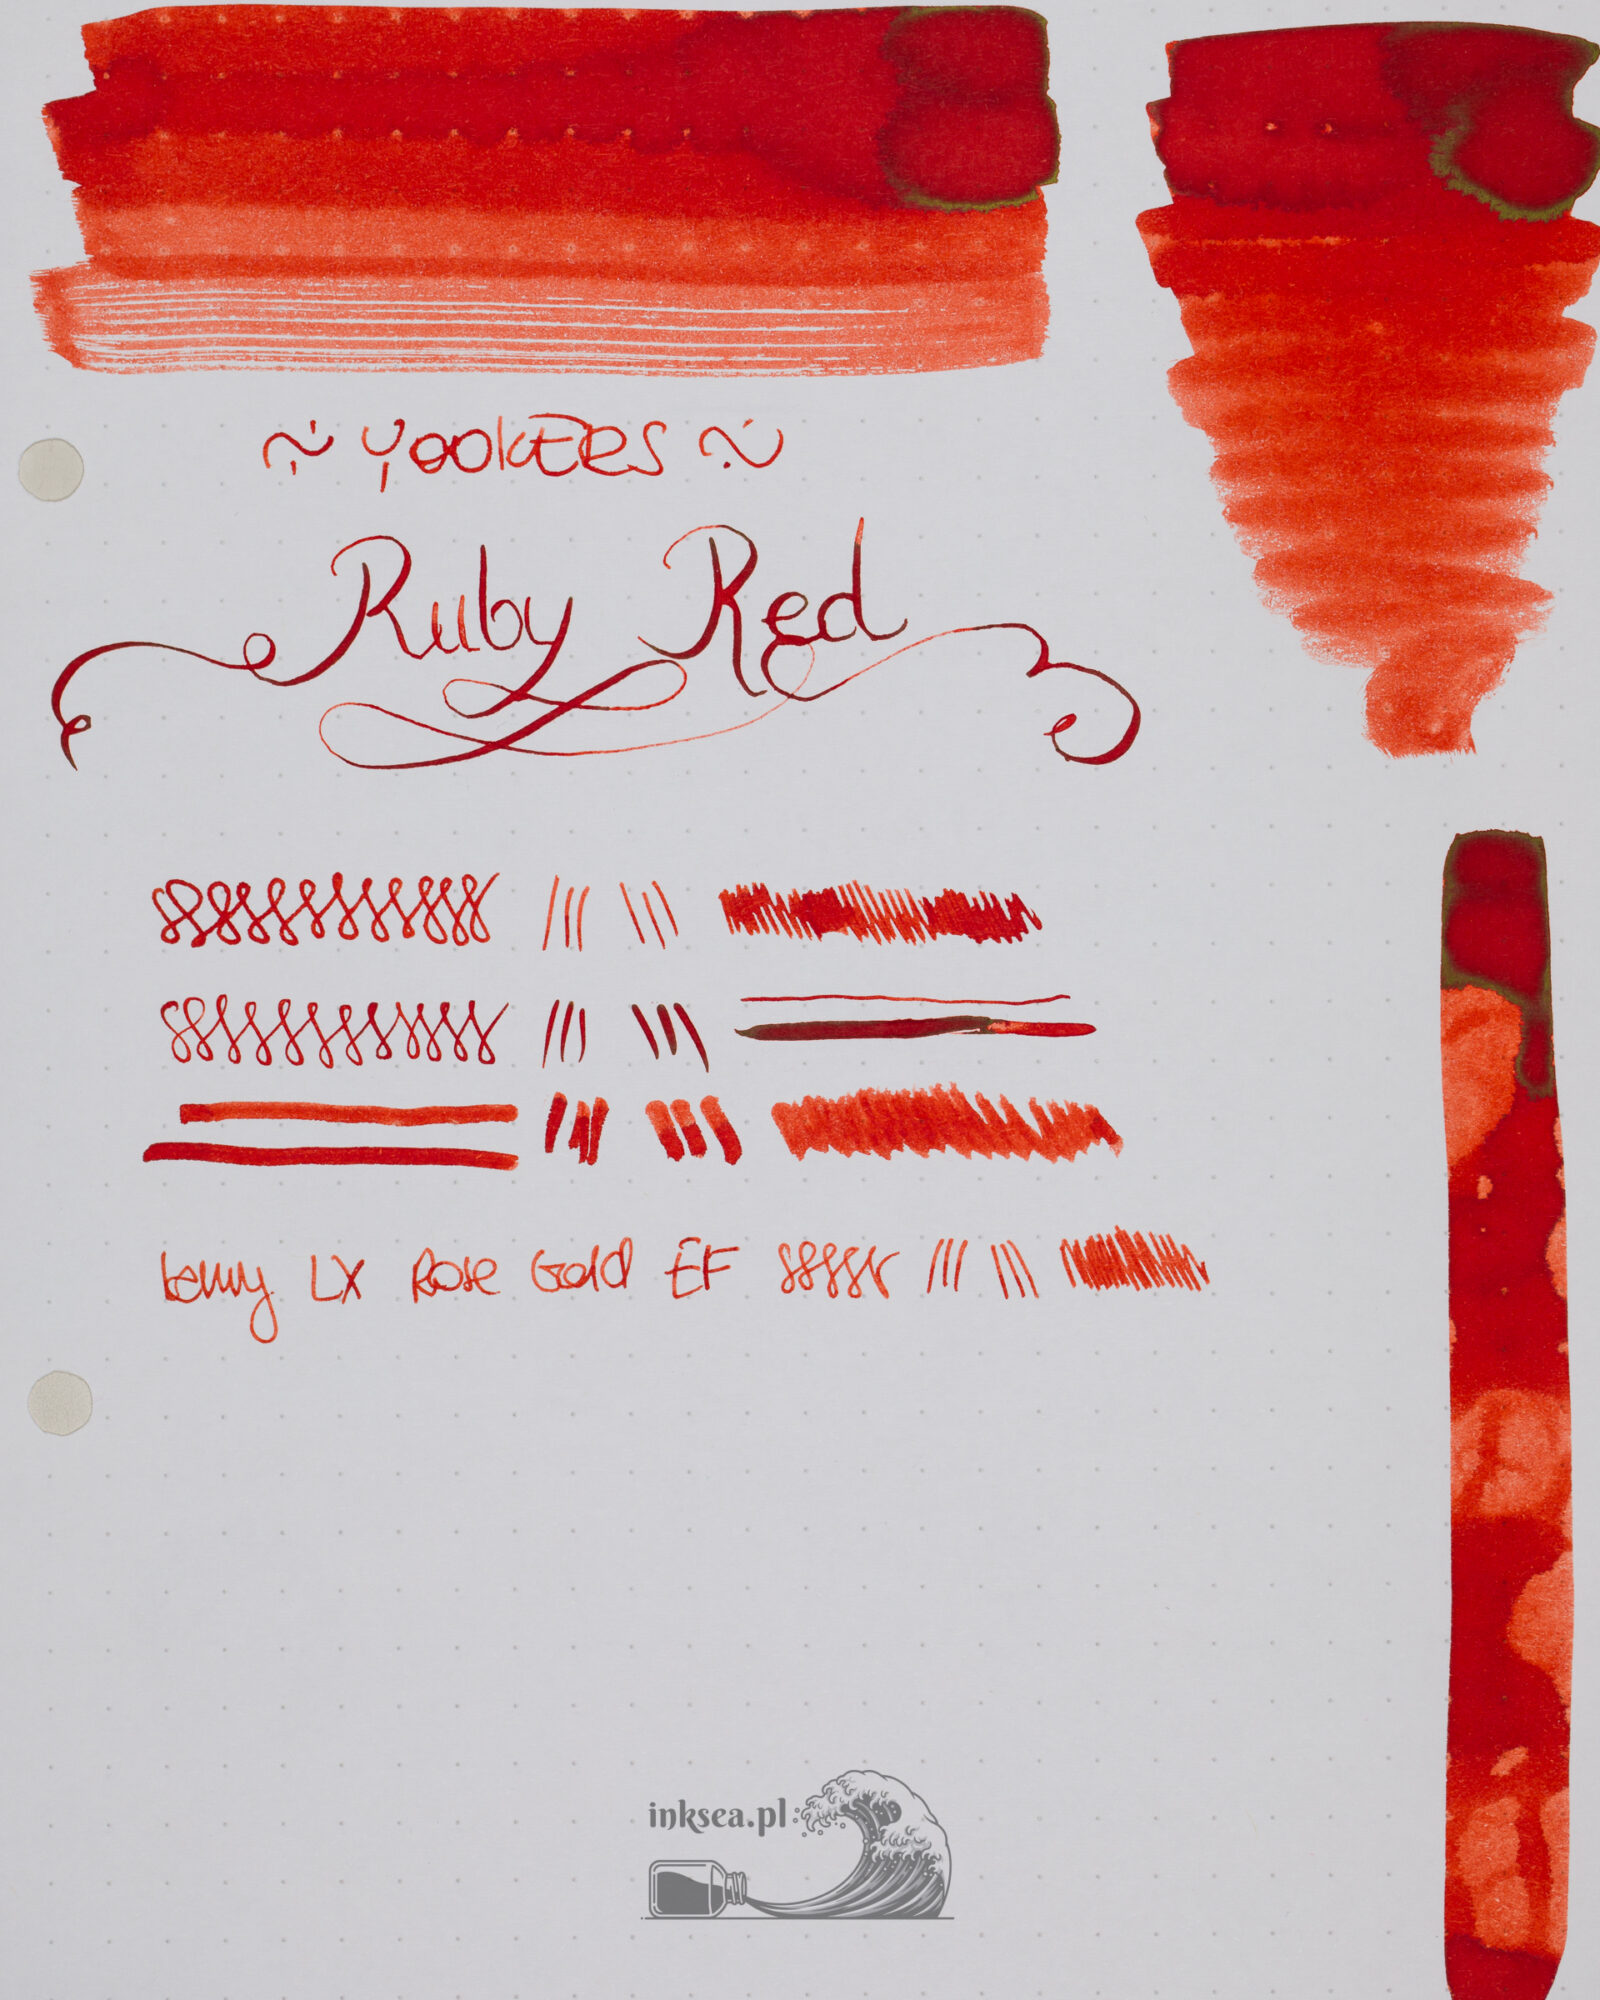 ~ YOOKERS ~
Ruby Red
Lamy LX Rose Gold EF
inksea.pl